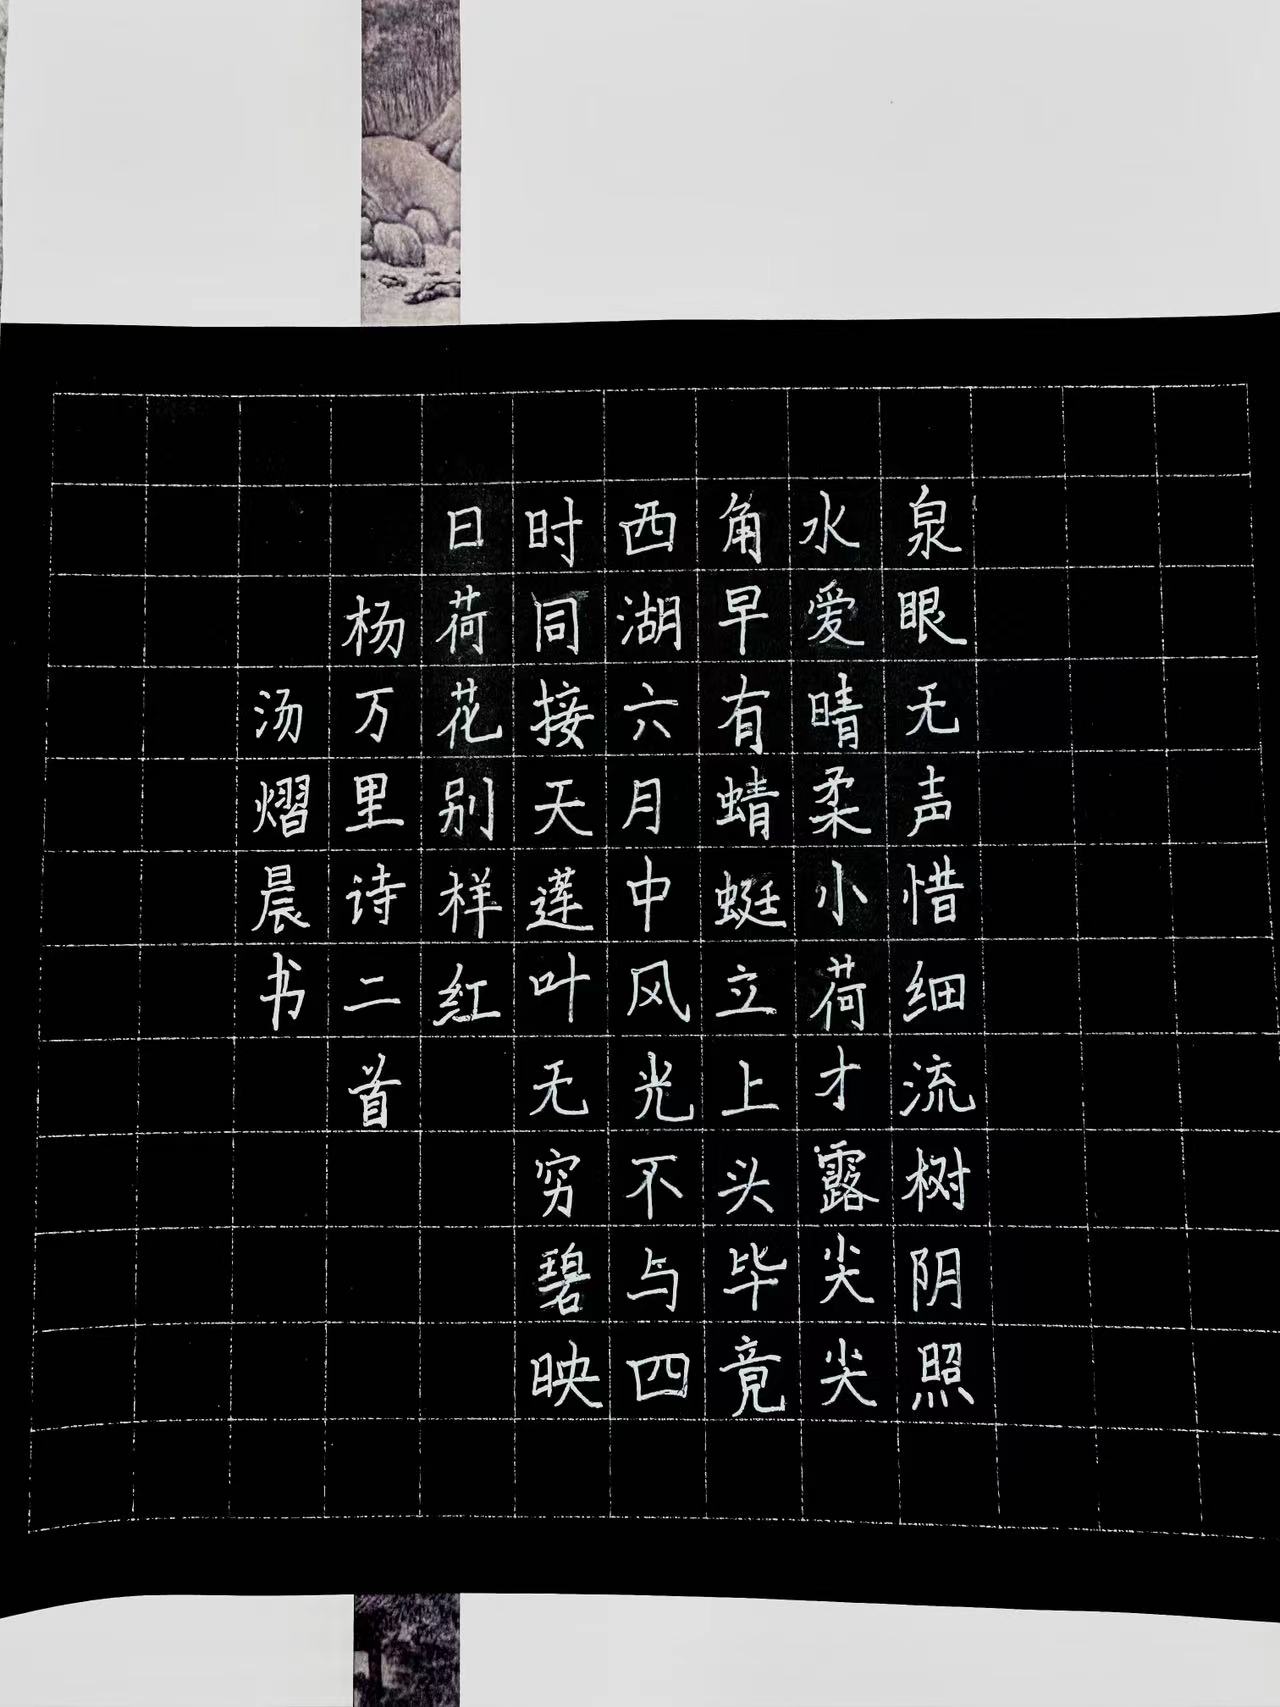 泉眼无声惜细流树阴照
水爱晴柔小荷才露尖尖
角早有蜻蜓立上头毕竟
西湖六月中风光不与四
时同接天莲叶无穷碧映
日荷花别样红
杨万里诗二首
汤熠晨书